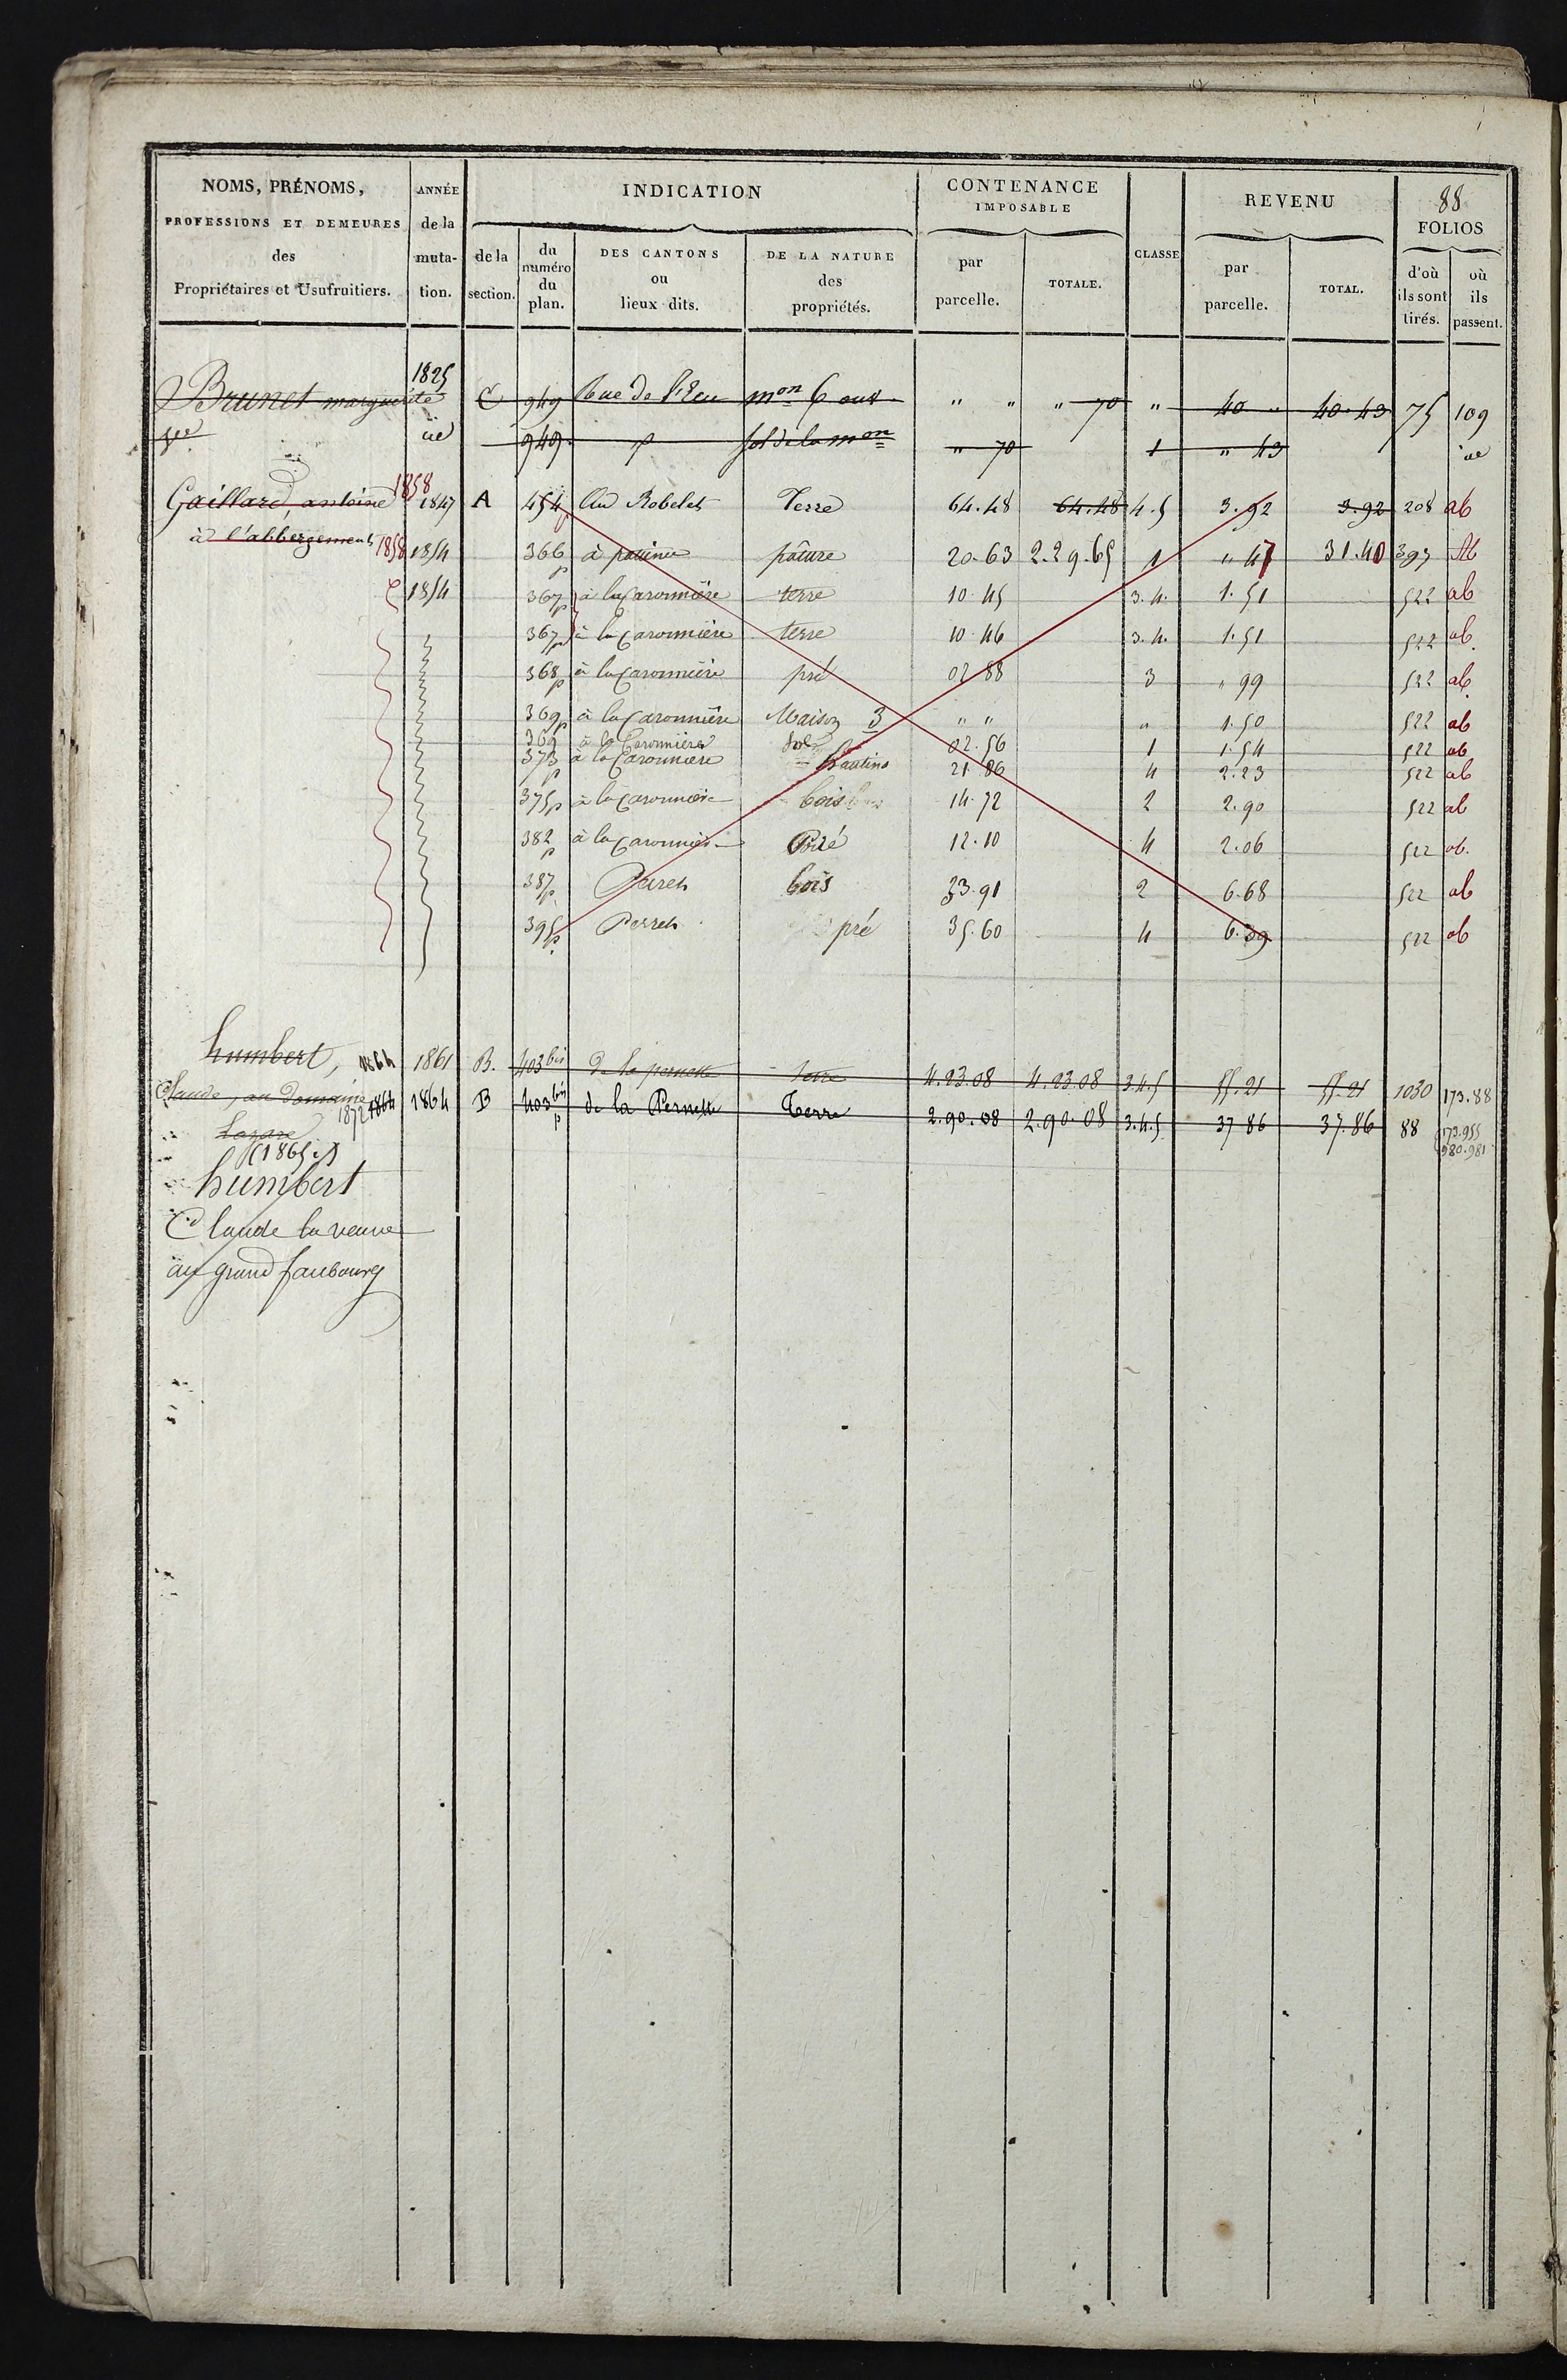 NOMS, PRÉNOMS, PROFESSIONS ET DEMEURES des Propriétaires et Usufruitiers.
ANNÉE de la muta-tion.
INDICATION
de la section.
du numéro du plan.
DES CANTONS ou lieux dits.
DE LA NATURE des propriétés.
CONTENANCE IMPOSABLE
par parcelle.
TOTALE.
CLASSE
REVENU
par parcelle.
TOTAL.
88
FOLIOS
d'où ils sont tirés.
où ils passent.
1825
Brunet marguerite C 949 Rue de l'Ecu mon 6 ouv " " " 70 " 40 " 40.43 75 109
949 sol de la mon " 70 1 " 43
Gaillard, antoine 1858 1847 A 454 Au Robelet Terre 64.48 64.48 4.5 3.92 3.92 208 ab
à l'abbergement 1858 1854 366 p pâture 20.63 2.29.65 1 " 47 31.40 393 ab
1854 367 p à la Caronnière terre 10.45 3.4. 1.51 522 ab
367 p à la Caronnière terre 10.46 3.4. 1.51 522 ab.
368 p à la Caronnière pré 02.88 3 " 99 522 ab.
369 p à la Caronnière Maison 3 " " " 1.50 522 ab
369 à la Caronnière Sol 02.56 1 1.54 522 ab
373 p à la Caronnière hautins 21.86 4 2.23 522 ab
375 p à la Caronnière bois 14.72 2 2.90 522 ab
382 p à la Caronnière Pré 12.10 4 2.06 522 ab.
387 p Perret bois 33.91 2 6.68 522 ab
395 p Perret pré 35.60 4 6.39 522 ab
humbert, 1864 1861 B. 403 bis De la pernette terre 4.23.08 4.23.08 3.4.5 55.21 55.21 1030 173.88
Claude, au Domaine 1872 1864 1864 B 403 bis p de la Pernette Terre 2.90.08 2.90.08 3.4.5 37.86 37.86 88 173.955
980.981
Lazare
(1865.)
humbert
Claude la veuve
au grand faubourg